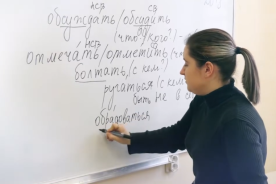 нсв св
обсуждать/обсудить
(что? кого?)
нсв
отмечать/отметить (что
болтать (с кем
ругаться (с кем
быть не в
обрадоваться